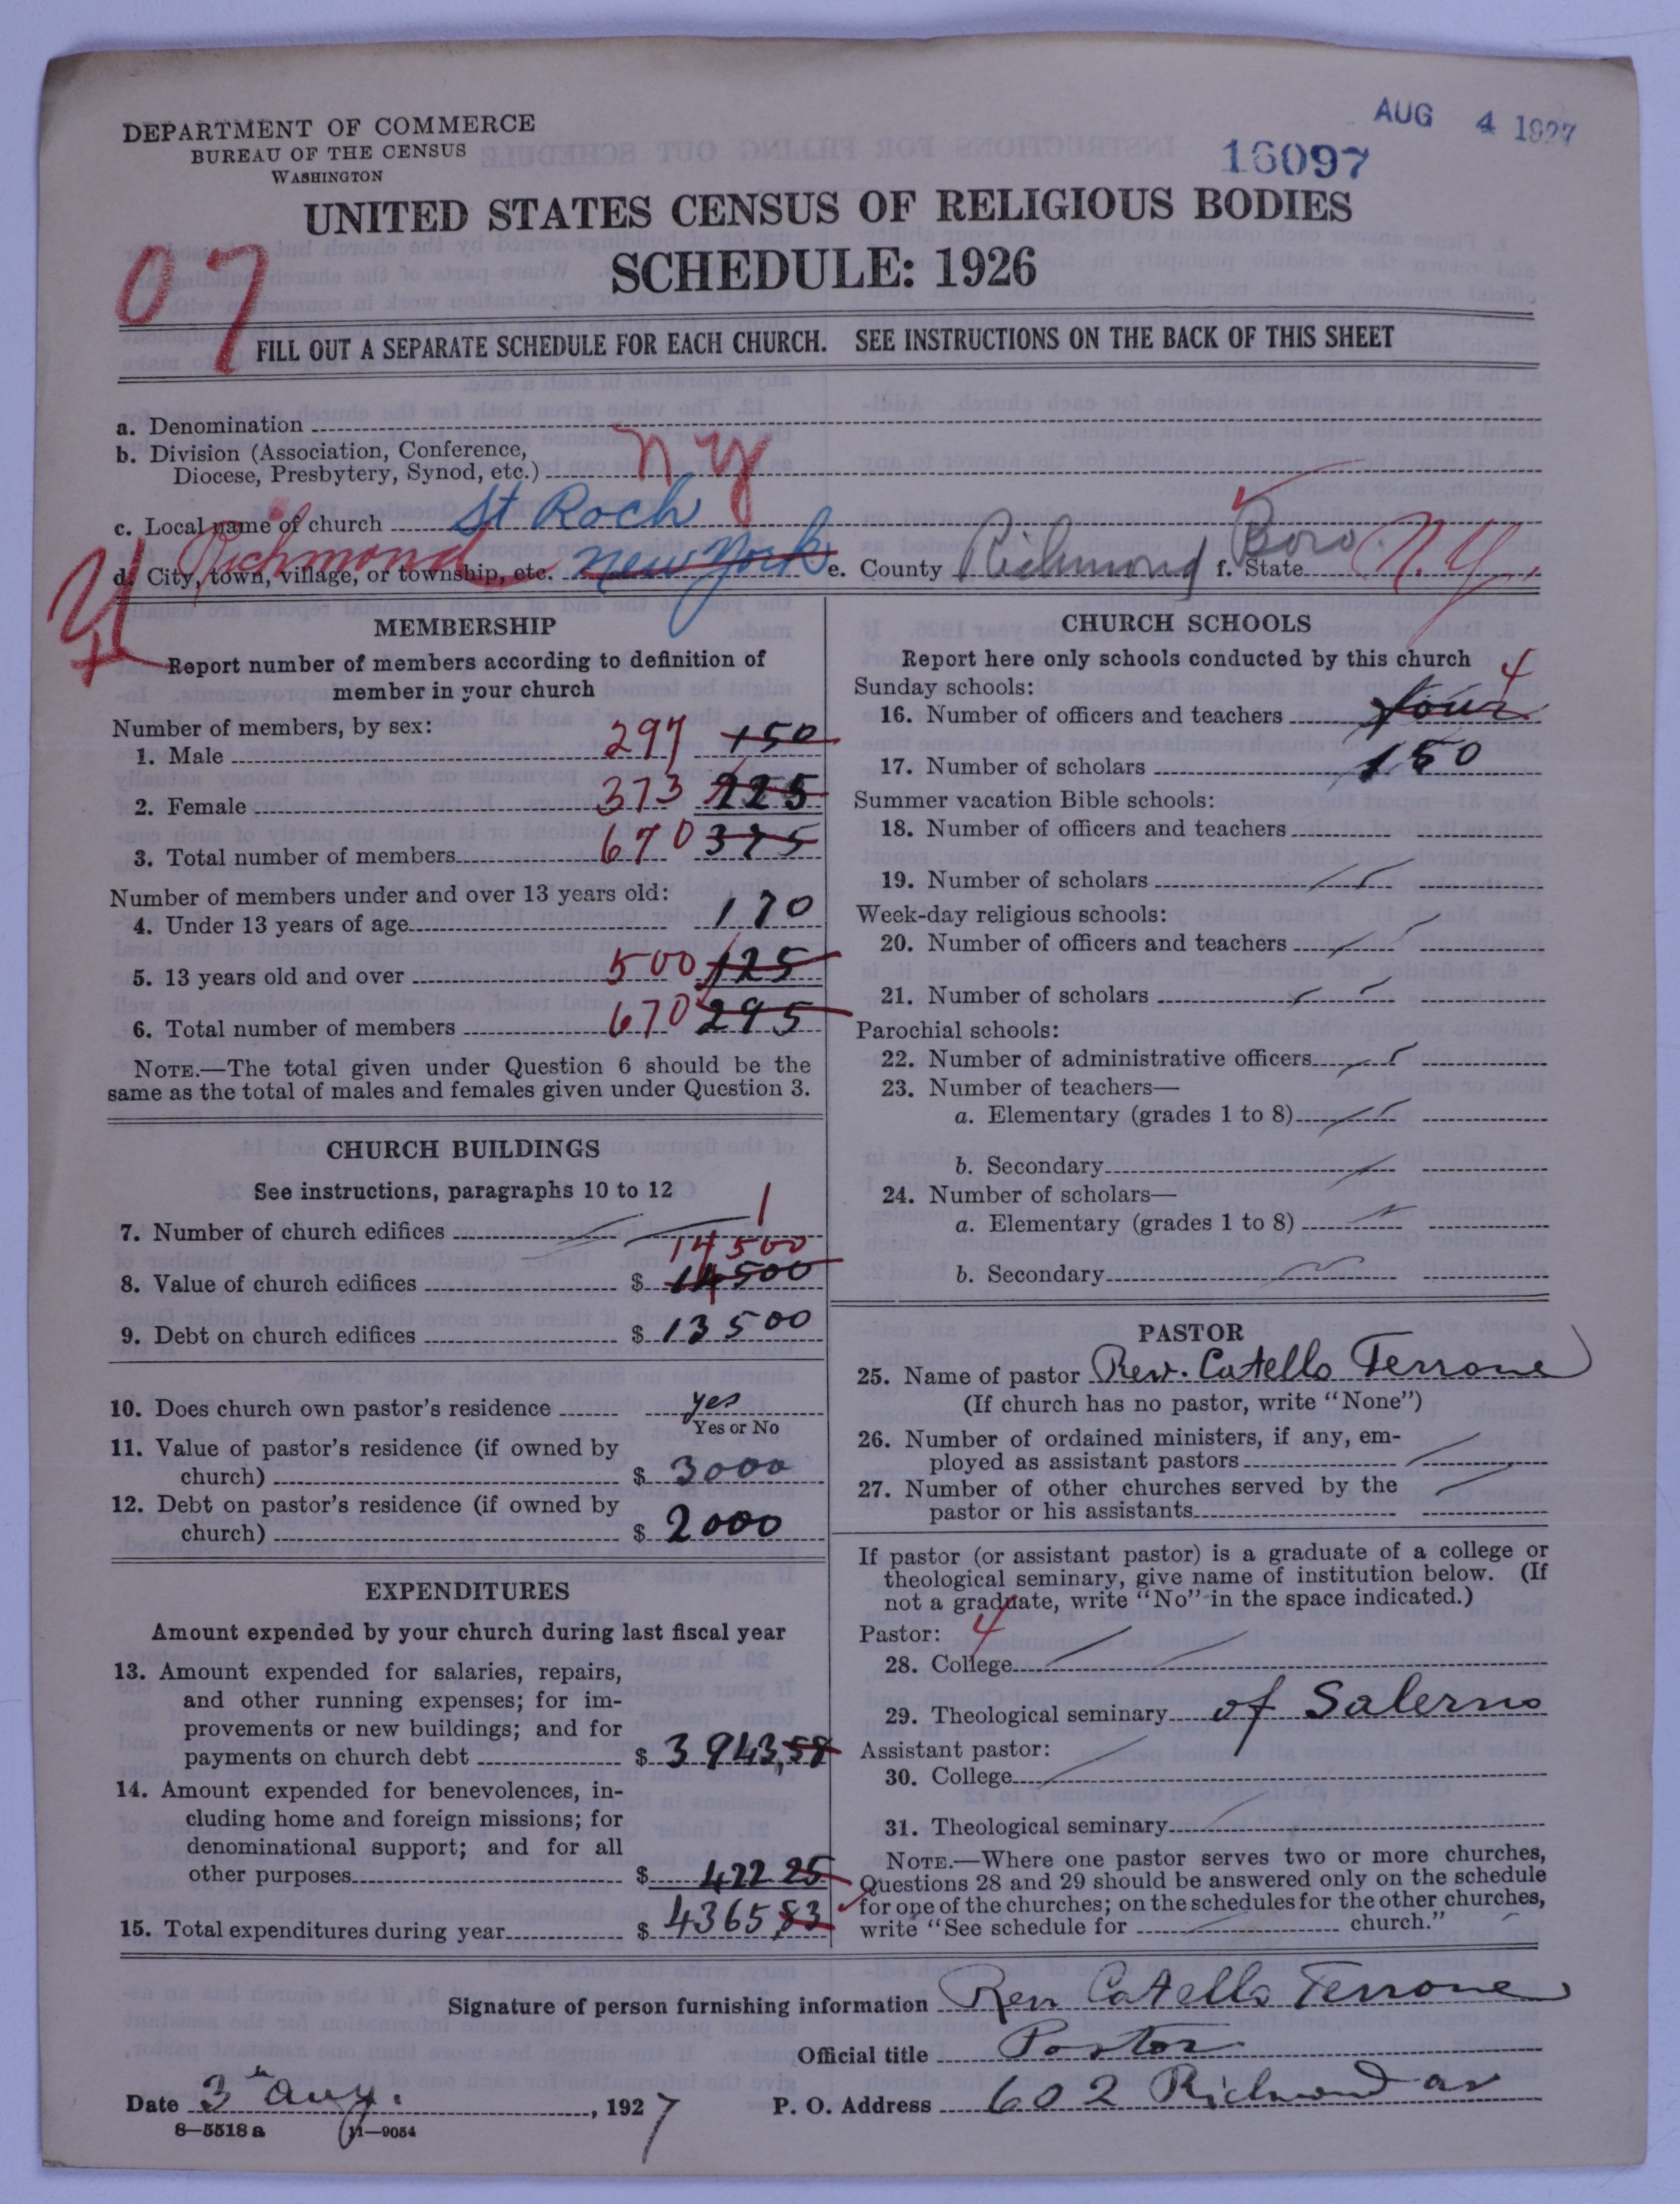 DEPARTMENT OF COMMERCE
BUREAU OF THE CENSUS
WASHINGTON
AUG 4 1927
16097
UNITED STATES CENSUS OF RELIGIOUS BODIES
SCHEDULE: 1926
07
FILL OUT A SEPARATE SCHEDULE FOR EACH CHURCH. SEE INSTRUCTIONS ON THE BACK OF THIS SHEET
a. Denomination
b. Division (Association, Conference,
Diocese, Presbytery, Synod, etc.) N Y
c. Local name of church St Roch
Richmond Boro.
d. City, town, village, or township, etc. New York e. County Richmond f. State N.Y.
MEMBERSHIP
Report number of members according to definition of
member in your church
Number of members, by sex:
1. Male 297 150
2. Female 373 225
3. Total number of members 670 375
Number of members under and over 13 years old:
4. Under 13 years of age 170
5. 13 years old and over 500 125
6. Total number of members 670 295
NOTE.—The total given under Question 6 should be the
same as the total of males and females given under Question 3.
CHURCH BUILDINGS
See instructions, paragraphs 10 to 12
7. Number of church edifices 1
14500
8. Value of church edifices $ 14500
9. Debt on church edifices $ 13500
10. Does church own pastor's residence yes
Yes or No
11. Value of pastor's residence (if owned by
church) $ 3000
12. Debt on pastor's residence (if owned by
church) $ 2000
EXPENDITURES
Amount expended by your church during last fiscal year
13. Amount expended for salaries, repairs,
and other running expenses; for im-
provements or new buildings; and for
payments on church debt $ 3943,58
14. Amount expended for benevolences, in-
cluding home and foreign missions; for
denominational support; and for all
other purposes $ 422 25
15. Total expenditures during year $ 4365,83
CHURCH SCHOOLS
Report here only schools conducted by this church
Sunday schools: 4
16. Number of officers and teachers four
17. Number of scholars 150
Summer vacation Bible schools:
18. Number of officers and teachers
19. Number of scholars
Week-day religious schools:
20. Number of officers and teachers
21. Number of scholars
Parochial schools:
22. Number of administrative officers
23. Number of teachers—
a. Elementary (grades 1 to 8)
b. Secondary
24. Number of scholars—
a. Elementary (grades 1 to 8)
b. Secondary
PASTOR
25. Name of pastor Rev. Catello Terrone
(If church has no pastor, write "None")
26. Number of ordained ministers, if any, em-
ployed as assistant pastors
27. Number of other churches served by the
pastor or his assistants
If pastor (or assistant pastor) is a graduate of a college or
theological seminary, give name of institution below. (If
not a graduate, write "No" in the space indicated.)
Pastor: 4
28. College
29. Theological seminary of Salerno
Assistant pastor:
30. College
31. Theological seminary
NOTE.—Where one pastor serves two or more churches,
Questions 28 and 29 should be answered only on the schedule
for one of the churches; on the schedules for the other churches,
write "See schedule for church."
Signature of person furnishing information Rev Catello Terrone
Official title Pastor
Date 3th Aug. , 1927 P. O. Address 602 Richmond av
8—5518 a 11—9054